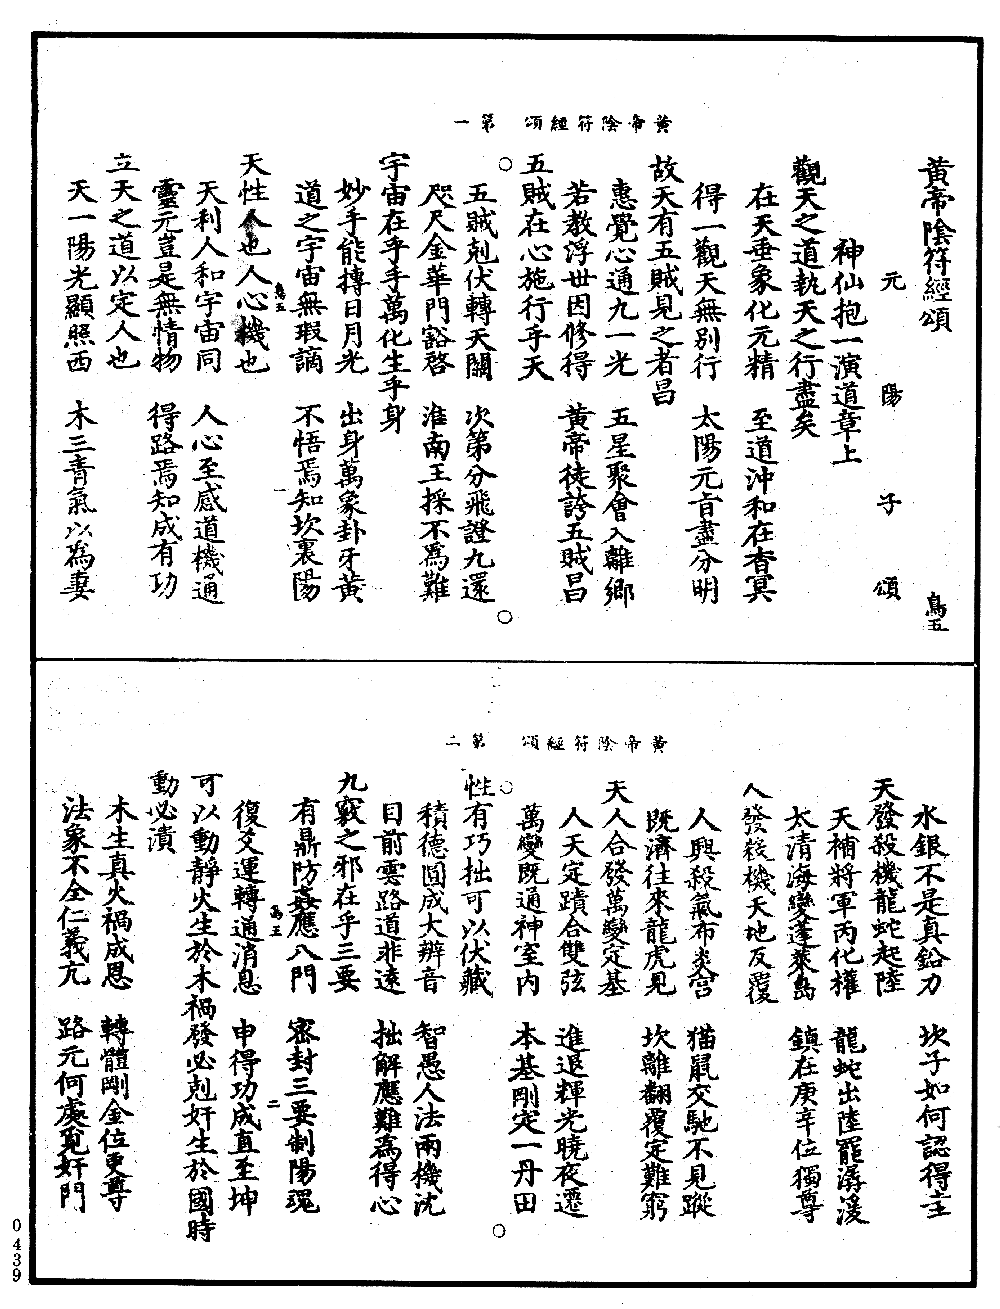 黃帝陰符經頌　第一
黃帝陰符經頌　鳥五
元陽子頌
神仙抱一演道章上
觀天之道執天之行盡矣
在天垂象化元精　至道沖和在杳冥
得一觀天無別行　太陽元盲盡分明
故天有五賊見之者昌
惠覺心通九一光　五星聚會入離鄉
若教浮世因修得　黃帝徒誇五賊昌
五賊在心施行乎天
五賊剋伏轉天關　次第分飛證九還
咫尺金華門豁啓　淮南王採不爲難
宇宙在乎手萬化生乎身
妙手能摶日月光　出身萬象卦牙黃
道之宇宙無瑕謫　不悟焉知坎裏陽
鳥五　一
天性人也人心機也
天利人和宇宙同　人心至感道機通
靈元豈是無情物　得路焉知成有功
立天之道以定人也
天一陽光顯照西　木三青氣以為妻
黃帝陰符經頌　第二
水銀不是真鉛刀　坎子如何認得主
天發殺機龍蛇起陸
天楠將軍丙化權　龍蛇出陸罷潺湲
太清海變蓬萊島　鎮在庚辛位獨尊
人發殺機天地反覆
人興殺氣布炎宮　猫鼠交馳不見蹤
既濟往來龍虎見　坎離翻覆定難窮
天人合發萬變定基
人天定蹟合雙弦　進退輝光曉夜遷
萬變既通神室内　本基剛定一丹田
性有巧拙可以伏藏
積德圓成大辨音　智愚人法兩機沈
目前雲路道非遠　拙解應難為得心
九竅之邪在乎三要
有鼎防姦應八門　密封三要制陽魂
鳥五　二
復爻運轉通消息　申得功成直至坤
可以動靜火生於木禍發必剋奸生於國時
動必潰
木生真火禍成恩　轉體剛金位更尊
法象不全仁義亢　路元何處覓奸門
0439